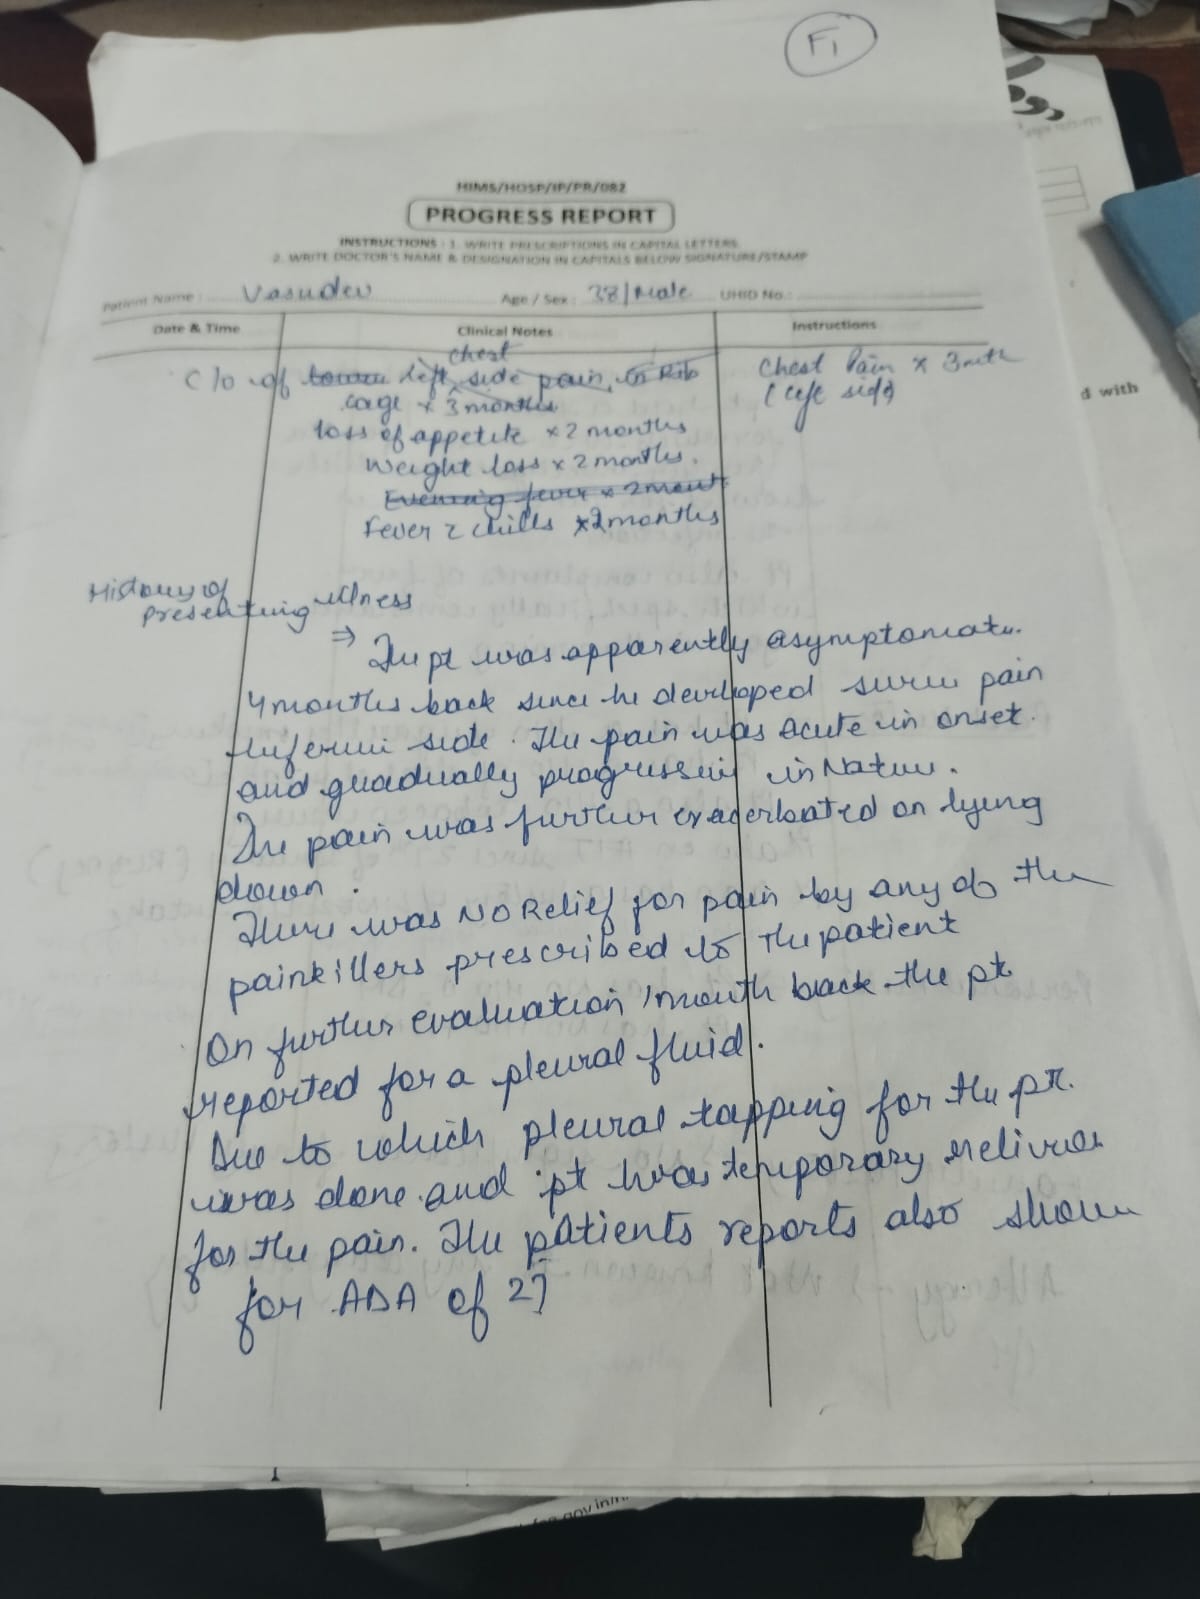 F1
HIMS/HOSP/IP/PR/082
PROGRESS REPORT
INSTRUCTIONS : 1. WRITE PRESCRIPTIONS IN CAPITAL LETTERS
2. WRITE DOCTOR'S NAME & DESIGNATION IN CAPITALS BELOW SIGNATURE/STAMP
Patient Name : Vasudev Age / Sex : 38/Male UHID No.:
Date & Time Clinical Notes Instructions
chest
C/o of left side pain, in Rib Chest Pain x 3mth
cage x 3 months (left side)
loss of appetite x 2 months
Weight loss x 2 months.
Evening fever x 2 month
Fever c chills x 2 months
d with
History of
presenting illness
⇒ The pt was apparently asymptomatic
4 months back since he developed severe pain
side. The pain was acute in onset.
and gradually progressive in Nature.
The pain was further exacerbated on lying
down.
There was NO Relief for pain by any of the
painkillers prescribed to the patient
On further evaluation 1 month back the pt
reported for a pleural fluid.
Due to which pleural tapping for the pt.
was done and pt was temporary
for the pain. The patients reports also show
for ADA of 27
.gov.in/